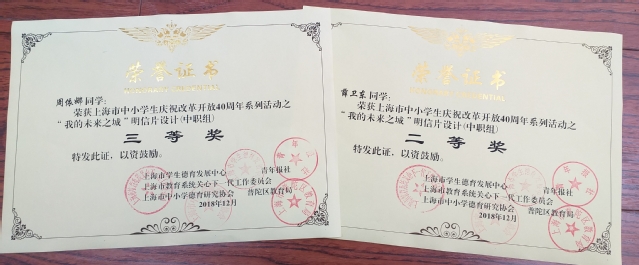 荣誉证书
周依娜同学：
荣获上海市中小学生庆祝改革开放40周年系列活动之
“我的未来之城”明信片设计(中职组)
三等奖
特发此证，以资鼓励。
上海市学生德育发展中心 青年报社
上海市教育系统关心下一代工作委员会
上海市中小学德育研究协会 普陀区教育局
2018年12月
荣誉证书
薛卫东同学：
荣获上海市中小学生庆祝改革开放40周年系列活动之
“我的未来之城”明信片设计(中职组)
二等奖
特发此证，以资鼓励。
上海市学生德育发展中心 青年报社
上海市教育系统关心下一代工作委员会
上海市中小学德育研究协会 普陀区教育局
2018年12月